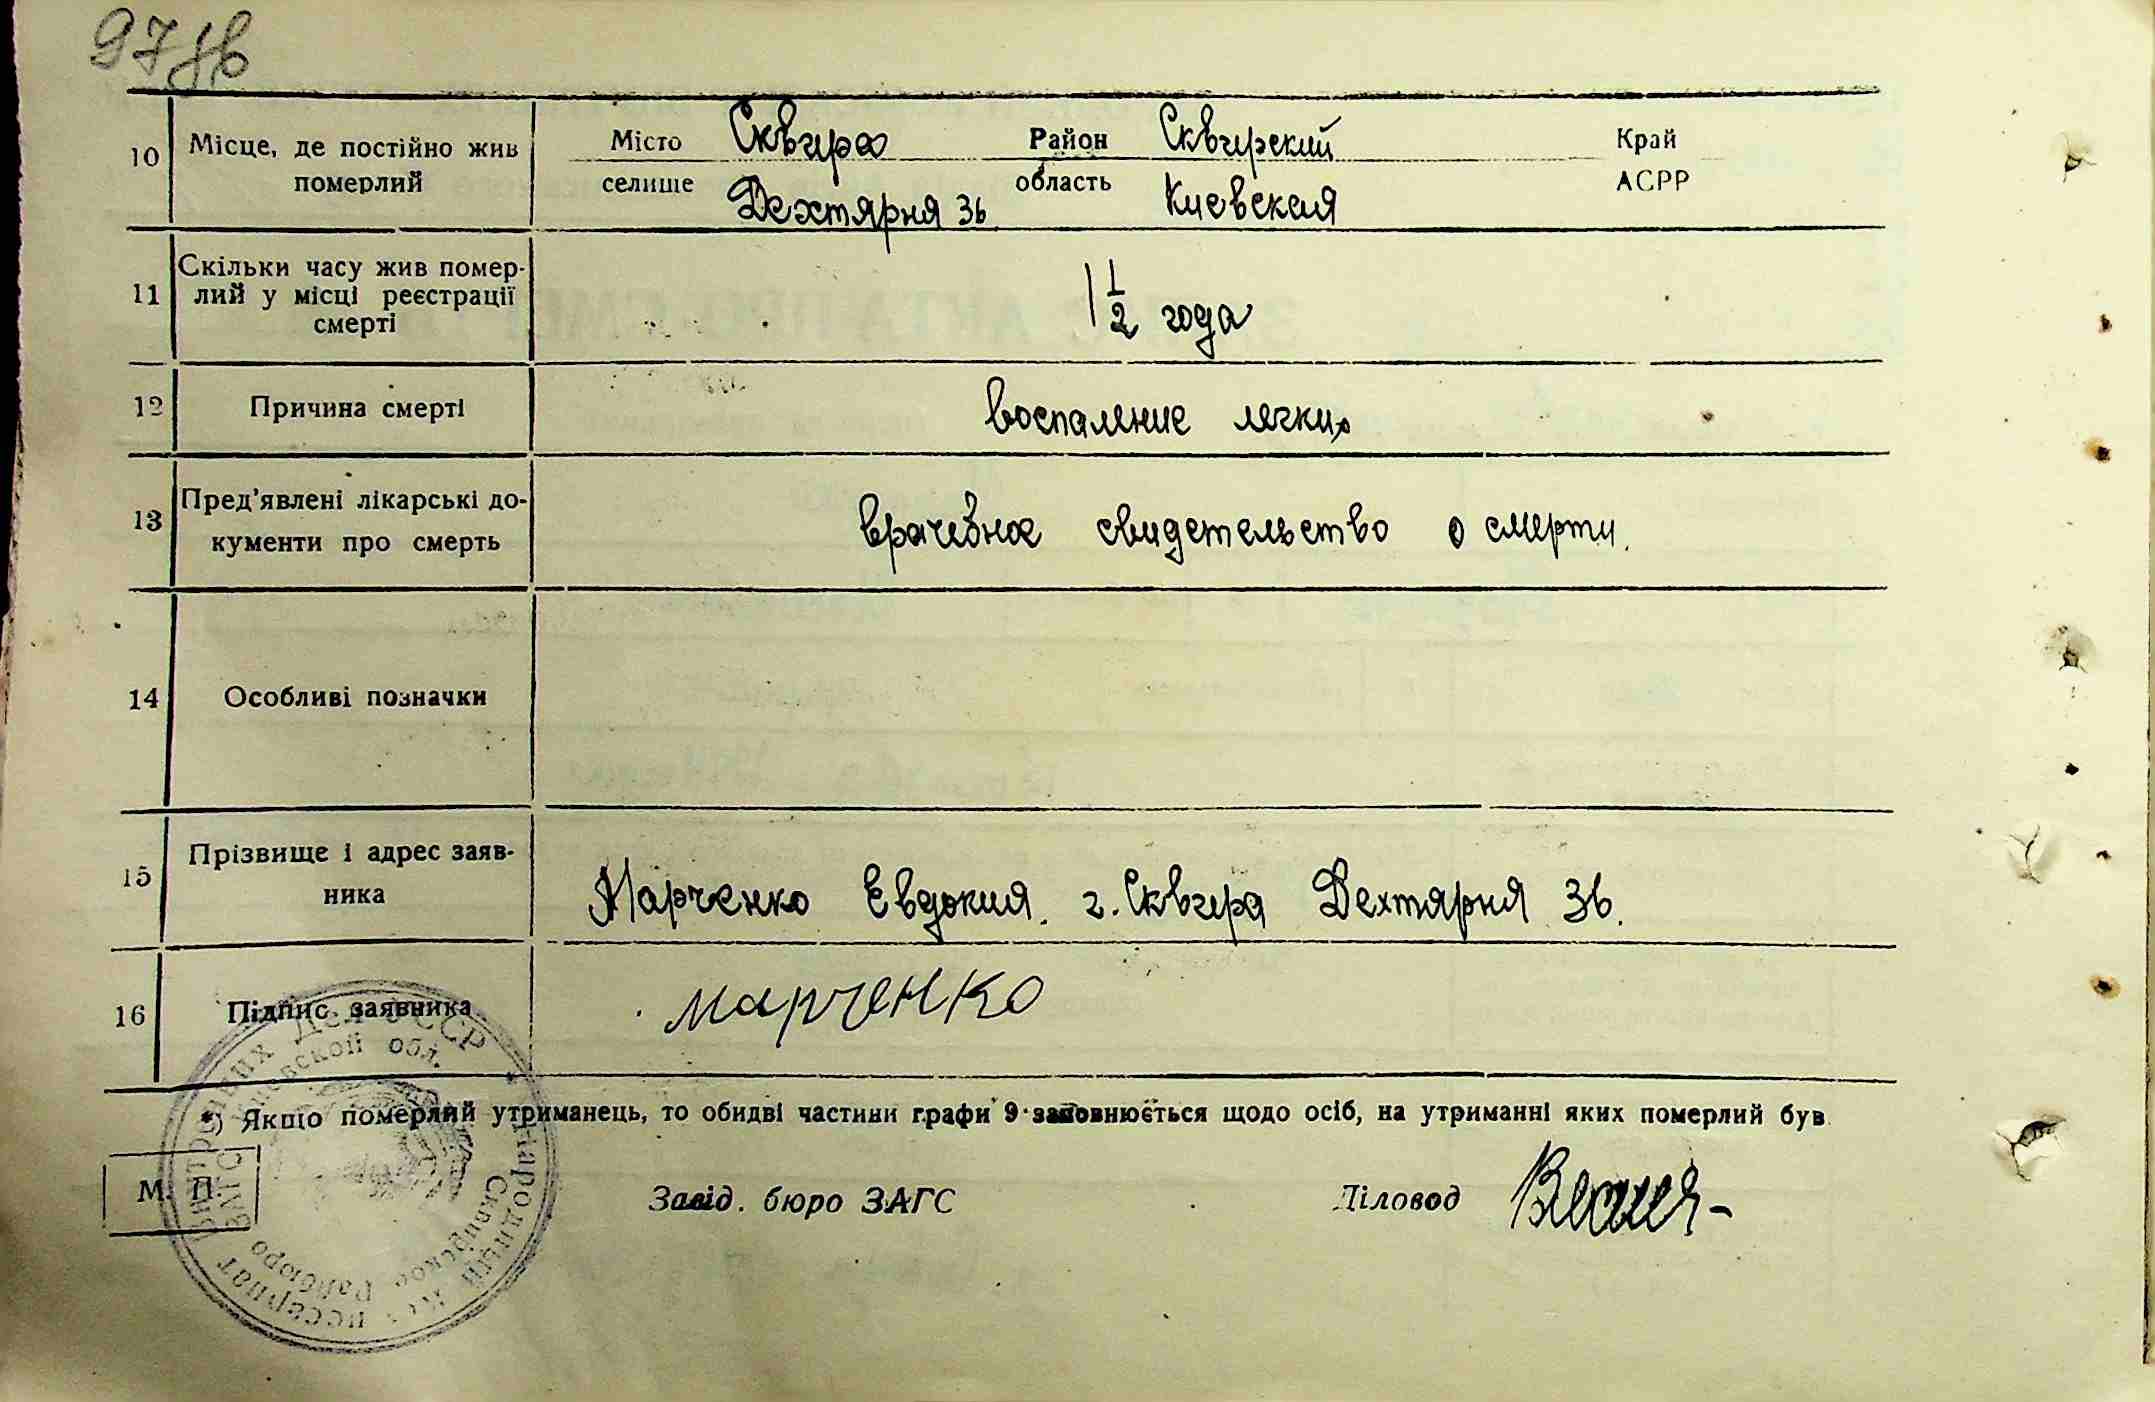 97 зв
10 Місце, де постійно жив
померлий
Місто Сквира Район Сквирский Край
селище Дехтярня 36 область Киевская АСРР
11 Скільки часу жив помер-
лий у місці реєстрації
смерті
1 1/2 года
12 Причина смерті воспаление легких
13 Пред'явлені лікарські до-
кументи про смерть
врачебное свидетельство о смерти.
14 Особливі позначки
15 Прізвище і адрес заяв-
ника
Марченко Евдокия. г. Сквира Дехтярня 36.
16 Підпис заявника марченко
*) Якщо померлий утриманець, то обидві частини графи 9 заповнюється щодо осіб, на утриманні яких померлий був
М. П.
Завід. бюро ЗАГС Діловод
Народный Комиссариат Внутренних Дел СССР
Сквирское Райбюро ЗАГС Киевской обл.